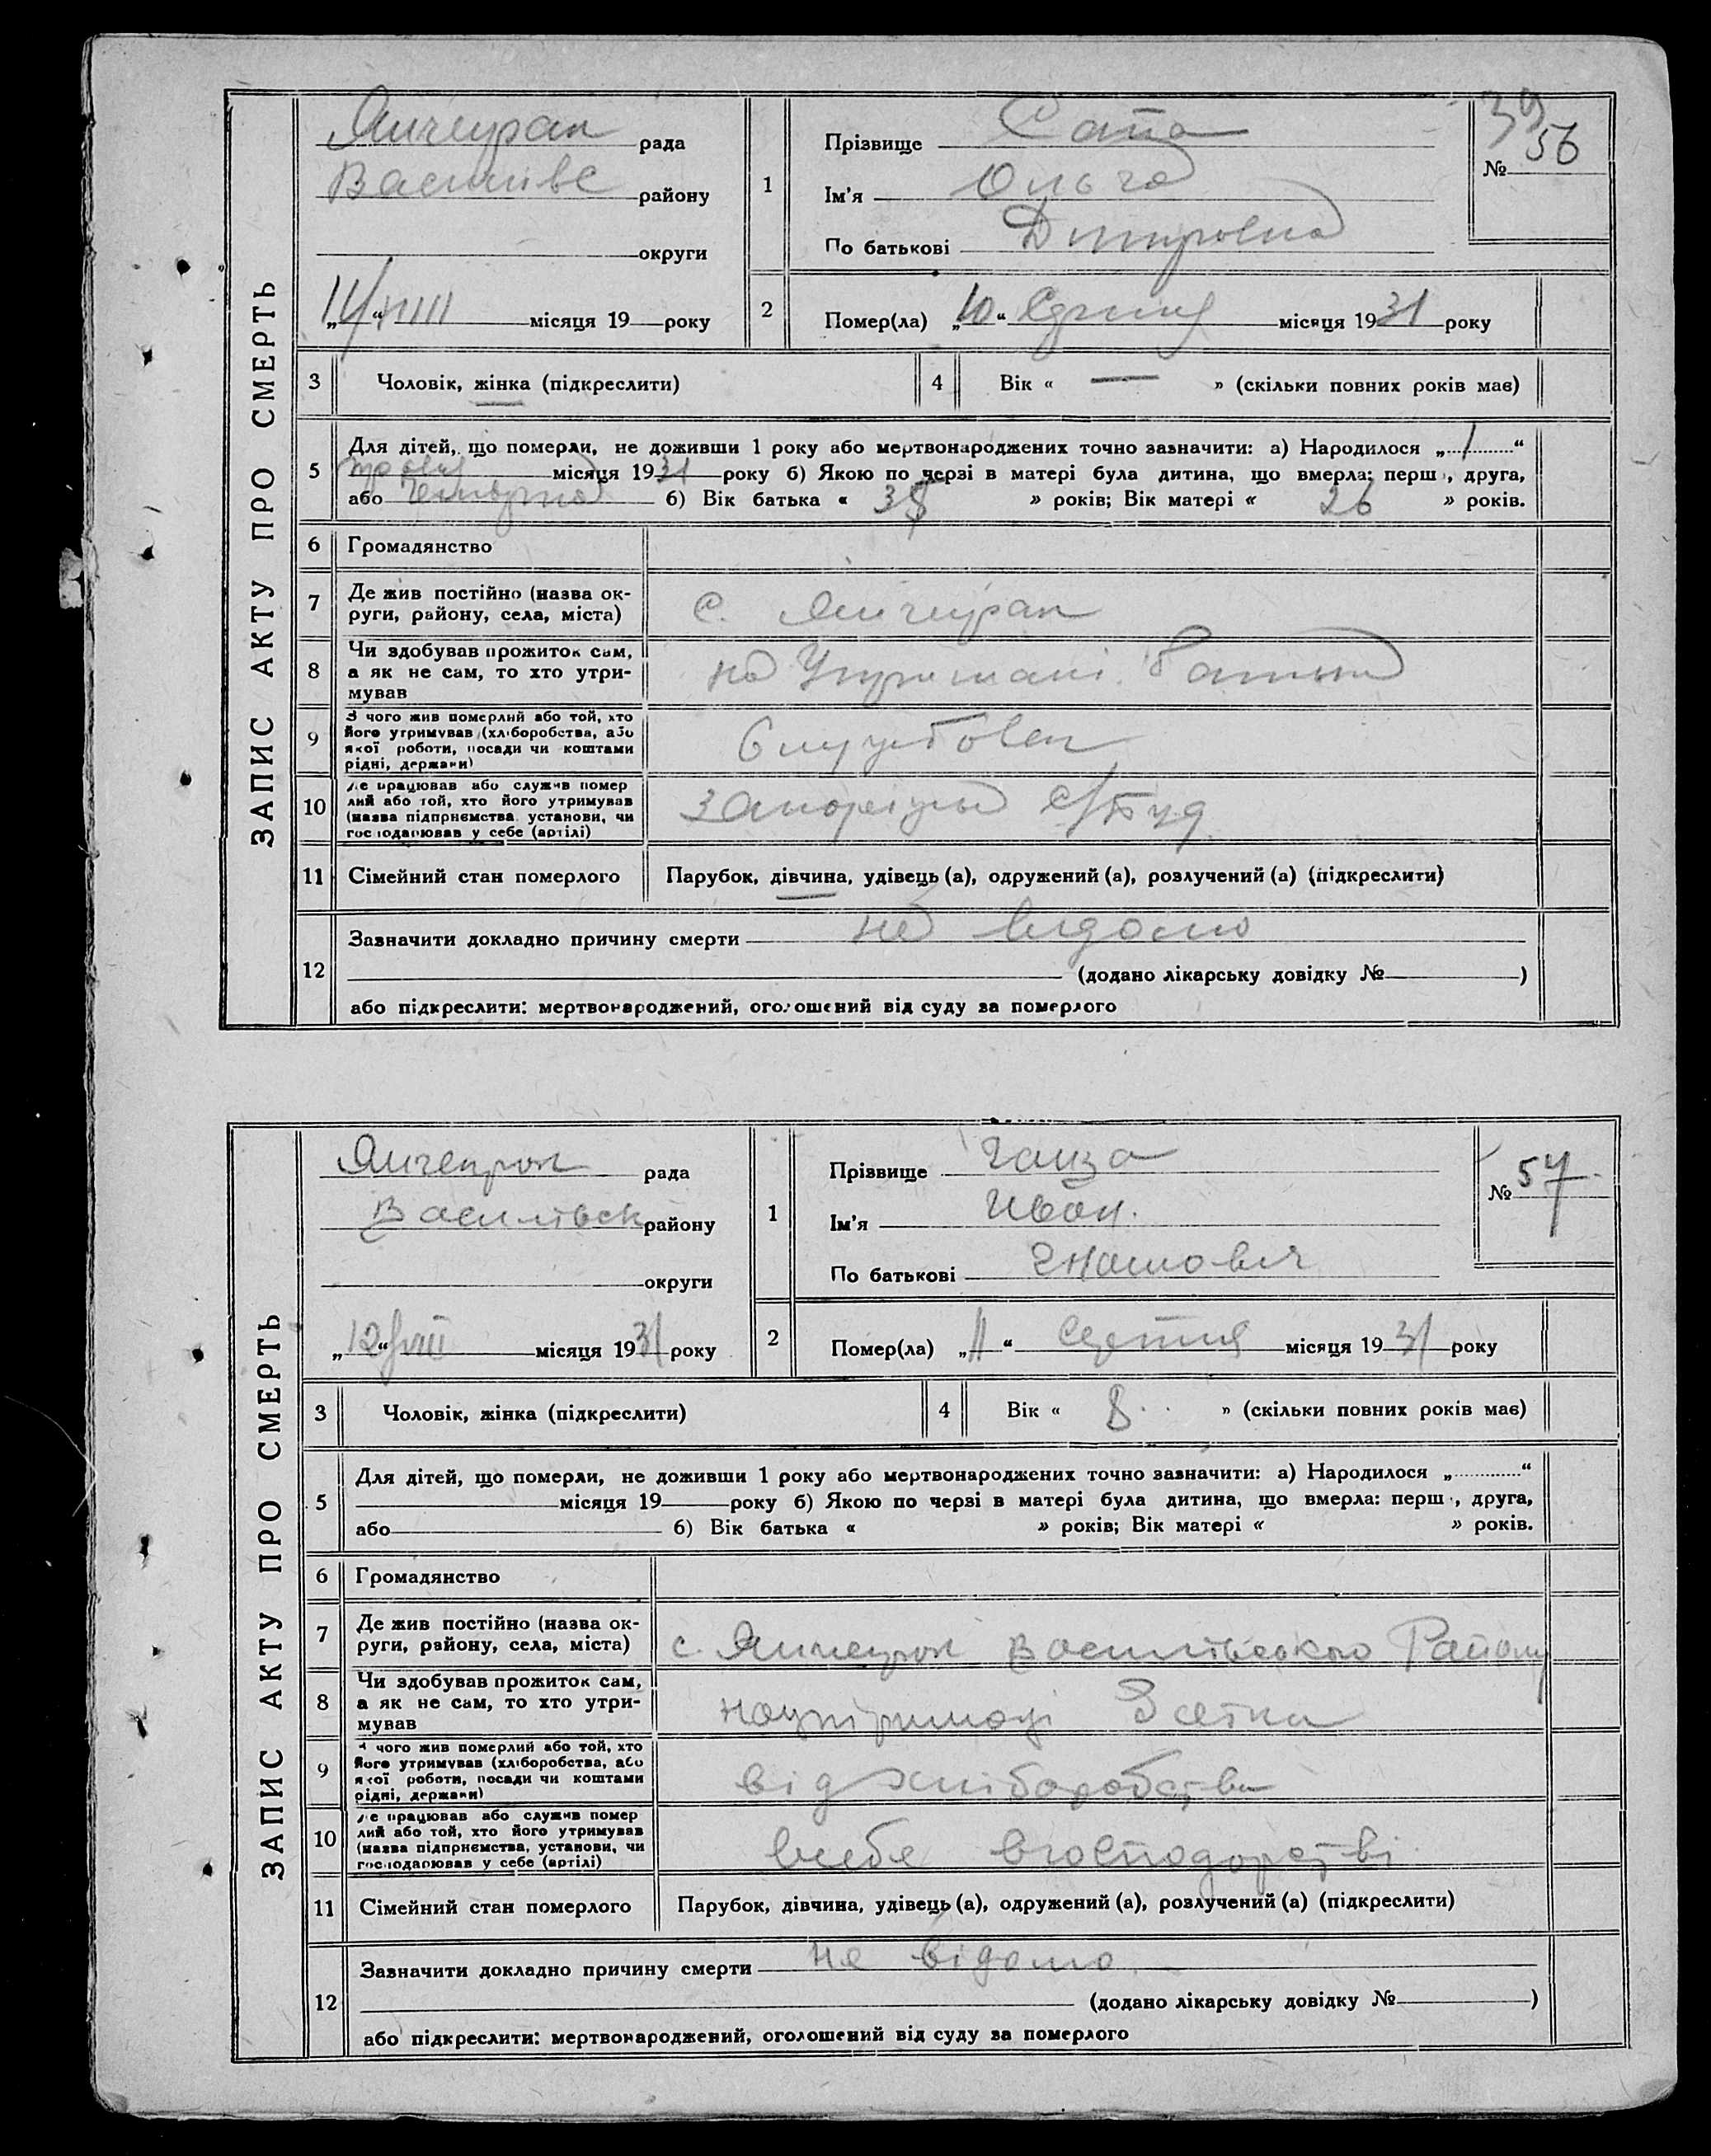 ЗАПИС АКТУ ПРО СМЕРТЬ
Янчекрак рада
Василівс району
округи
місяця 19 року
1
Прізвище
Ім'я Ольга
По батькові
39
№ 56
2
Помер(ла) „10“ Серпня місяця 1931 року
3
Чоловік, жінка (підкреслити)
4
Вік « — » (скільки повних років має)
5
Для дітей, що померли, не доживши 1 року або мертвонароджених точно зазначити: а) Народилося „1“
травня місяця 1931 року б) Якою по черзі в матері була дитина, що вмерла: перш, друга,
або четверта б) Вік батька « 38 » років; Вік матері « 26 » років.
6
Громадянство
7
Де жив постійно (назва ок-
руги, району, села, міста)
с. Янчекрак
8
Чи здобував прожиток сам,
а як не сам, то хто утри-
мував
на батька
9
З чого жив померлий або той, хто
його утримував (хліборобства, або
якої роботи, посади чи коштами
рідні, держави)
Службовец
10
Де працював або служив помер
лий або той, хто його утримував
(назва підприємства, установи, чи
господарював у себе (артілі)
11
Сімейний стан померлого
Парубок, дівчина, удівець (а), одружений (а), розлучений (а) (підкреслити)
12
Зазначити докладно причину смерти не видомо
(додано лікарську довідку № )
або підкреслити: мертвонароджений, оголошений від суду за померлого
ЗАПИС АКТУ ПРО СМЕРТЬ
Янчекрак рада
Василівск району
округи
„12“ VIII місяця 1931 року
1
Прізвище
Ім'я Иван.
По батькові
№ 57
2
Помер(ла) „11“ Серпня місяця 1931 року
3
Чоловік, жінка (підкреслити)
4
Вік « 8 » (скільки повних років має)
5
Для дітей, що померли, не доживши 1 року або мертвонароджених точно зазначити: а) Народилося „ “
місяця 19 року б) Якою по черзі в матері була дитина, що вмерла: перш, друга,
або б) Вік батька « » років; Вік матері « » років.
6
Громадянство
7
Де жив постійно (назва ок-
руги, району, села, міста)
с. Янчекрак Василівського Району
8
Чи здобував прожиток сам,
а як не сам, то хто утри-
мував
9
З чого жив померлий або той, хто
його утримував (хліборобства, або
якої роботи, посади чи коштами
рідні, держави)
від хліборобства
10
Де працював або служив помер
лий або той, хто його утримував
(назва підприємства, установи, чи
господарював у себе (артілі)
всебе вгосподарстві
11
Сімейний стан померлого
Парубок, дівчина, удівець (а), одружений (а), розлучений (а) (підкреслити)
12
Зазначити докладно причину смерти не відомо
(додано лікарську довідку № )
або підкреслити: мертвонароджений, оголошений від суду за померлого